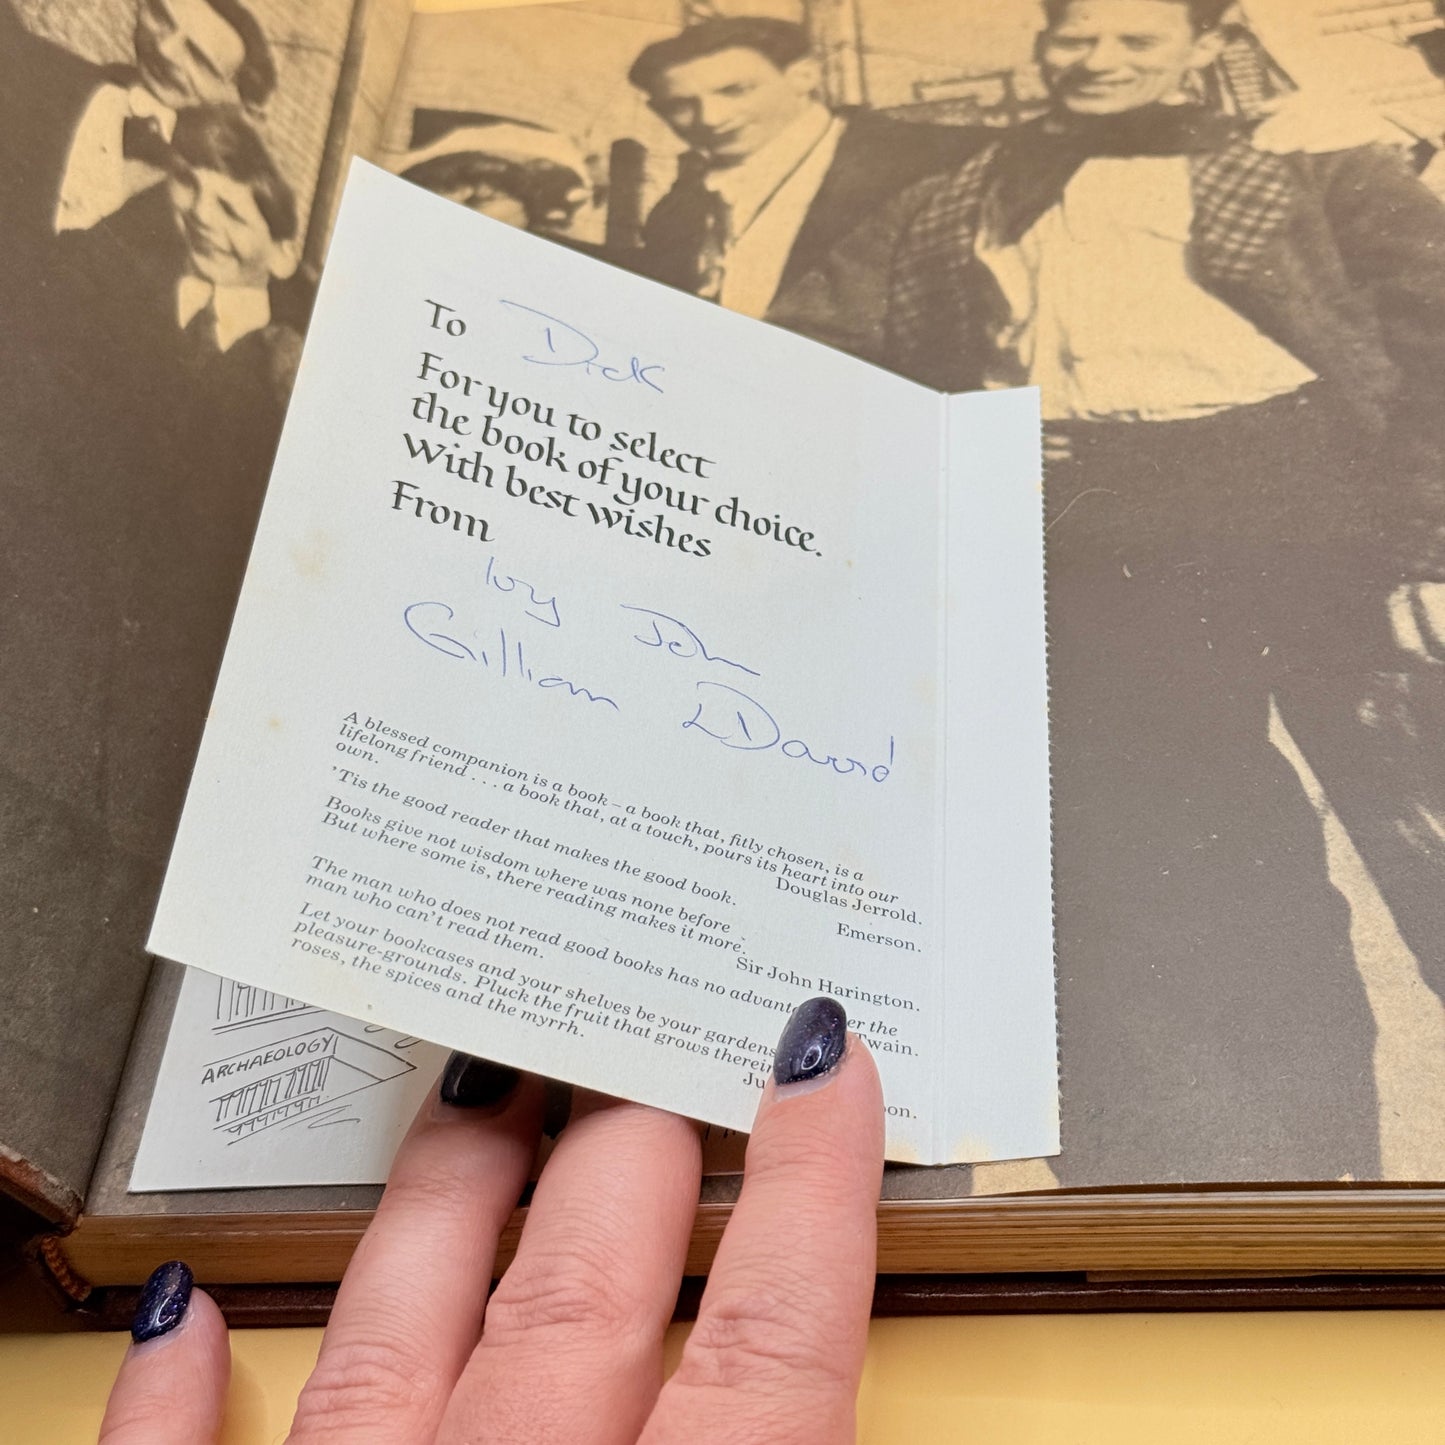 To Dick
For you to select
the book of your choice.
With best wishes
From
Ivy John
Gillian David
A blessed companion is a book – a book that, fitly chosen, is a
lifelong friend . . . a book that, at a touch, pours its heart into our
own.
Douglas Jerrold.
'Tis the good reader that makes the good book.
Emerson.
Books give not wisdom where was none before
But where some is, there reading makes it more.
Sir John Harington.
The man who does not read good books has no the
man who can't read them.
Twain.
Let your bookcases and your shelves be your gardens
pleasure-grounds. Pluck the fruit that grows therein
roses, the spices and the myrrh.
ARCHAEOLOGY